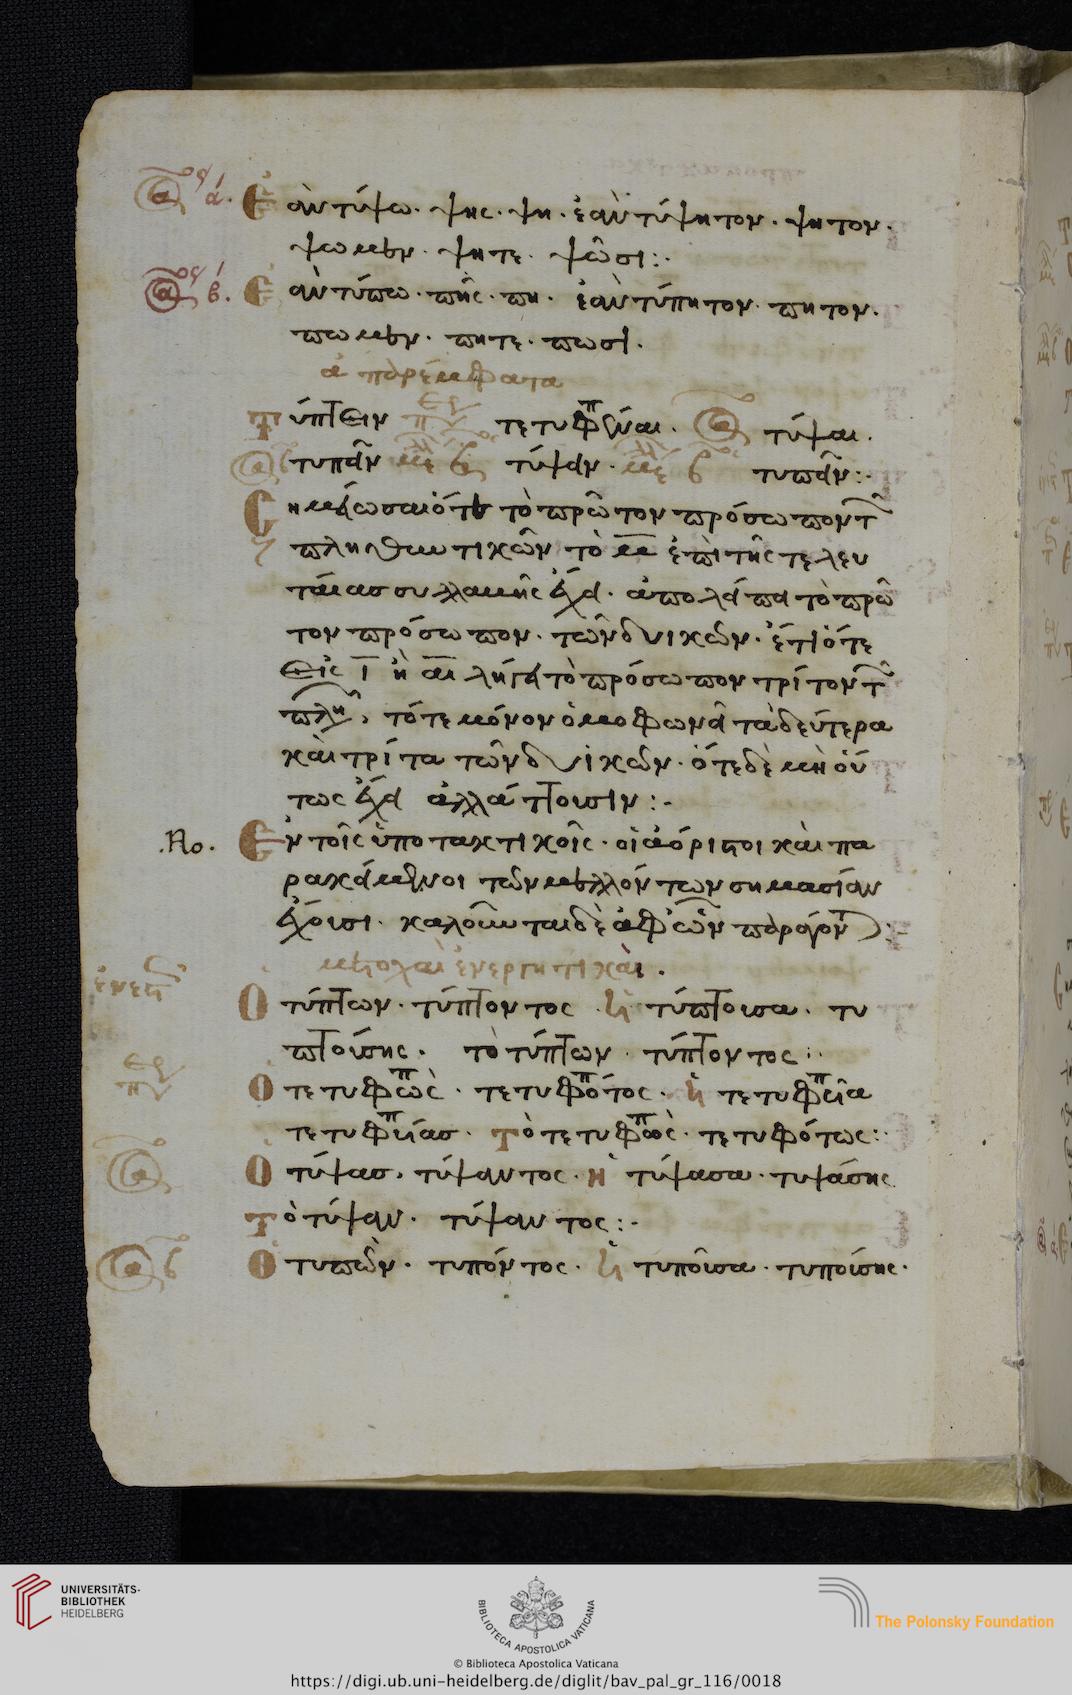 ἀόρ. ά. Ἐὰν τύψω · ψης · ψη · ἐὰν τύψητον · ψητον ·
ψωμεν · ψητε · ψῶσι :·
ἀόρ. β. Ἐὰν τύπω · πῃς · πη · ἐὰν τύπητον · πητον ·
πωμεν · πητε · πωσι ·
ἀπαρέμφατα
Τύπτειν τετυφέναι · τύψαι ·
τυπεῖν τύψειν · τυπεῖν :·
Σημείωσαι ὅτι τὸ πρῶτον πρόσωπον τ
πληθυντικῶν τὸ μ ἐπὶ τῆς τελευ
ταίας συλλαβῆς ἔχει · ἀπολείπει τὸ πρῶ
τον πρόσωπον · τῶν δυικῶν · ἔτι ὅτε
εἰς ῑ ἢ αι λήγει τὸ πρόσωπον τρίτον τ
πλη, τότε μόνον ὁμοφωνεῖ τὰ δεύτερα
καὶ τρίτα τῶν δυικῶν · ὅτε δὲ μὴ οὕ
τως ἔχει ἀλλάττουσιν :·
.No. Ἐν τοῖς ὑποτακτικοῖς · οἱ ἀόριστοι καὶ πα
ρακείμενοι τῶν μελλόντων σημασίαν
ἔχουσι · καλοῦνται δὲ
μετοχαὶ ἐνεργητικαὶ ·
ἐνεστ Ὁ τύπτων · τύπτοντος ἡ τύπτουσα · τυ
πτούσης · τὸ τύπτων · τύπτοντος :·
Ὁ τετυφὼς · τετυφότος · ἡ τετυφυῖα
τετυφυίας · Τὸ τετυφὸς · τετυφότως :·
Ὁ τύψας, τύψαντος · ἡ τύψασα · τυψάσης
Τὸ τύψαν · τύψαντος :·
Ὁ τυπὼν · τυπόντος · ἡ τυποῦσα · τυπούσης ·
UNIVERSITÄTS-
BIBLIOTHEK
HEIDELBERG
BIBLIOTECA APOSTOLICA VATICANA
The Polonsky Foundation
© Biblioteca Apostolica Vaticana
https://digi.ub.uni-heidelberg.de/diglit/bav_pal_gr_116/0018